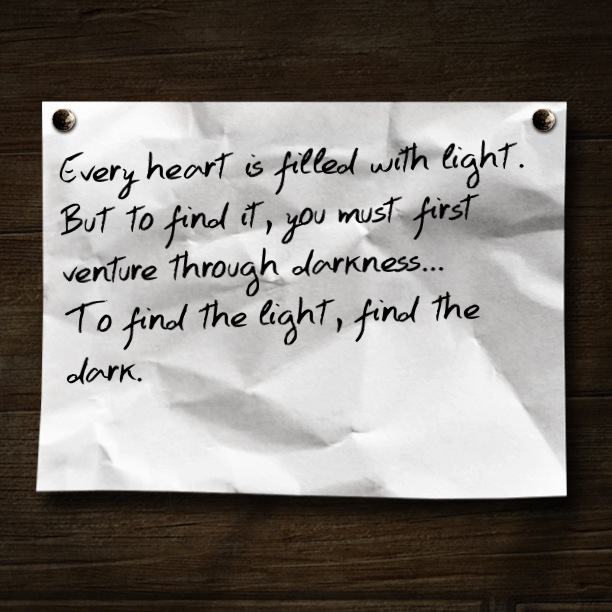 Every heart is filled with light.
But to find it, you must first
venture through darkness...
To find the light, find the
dark.